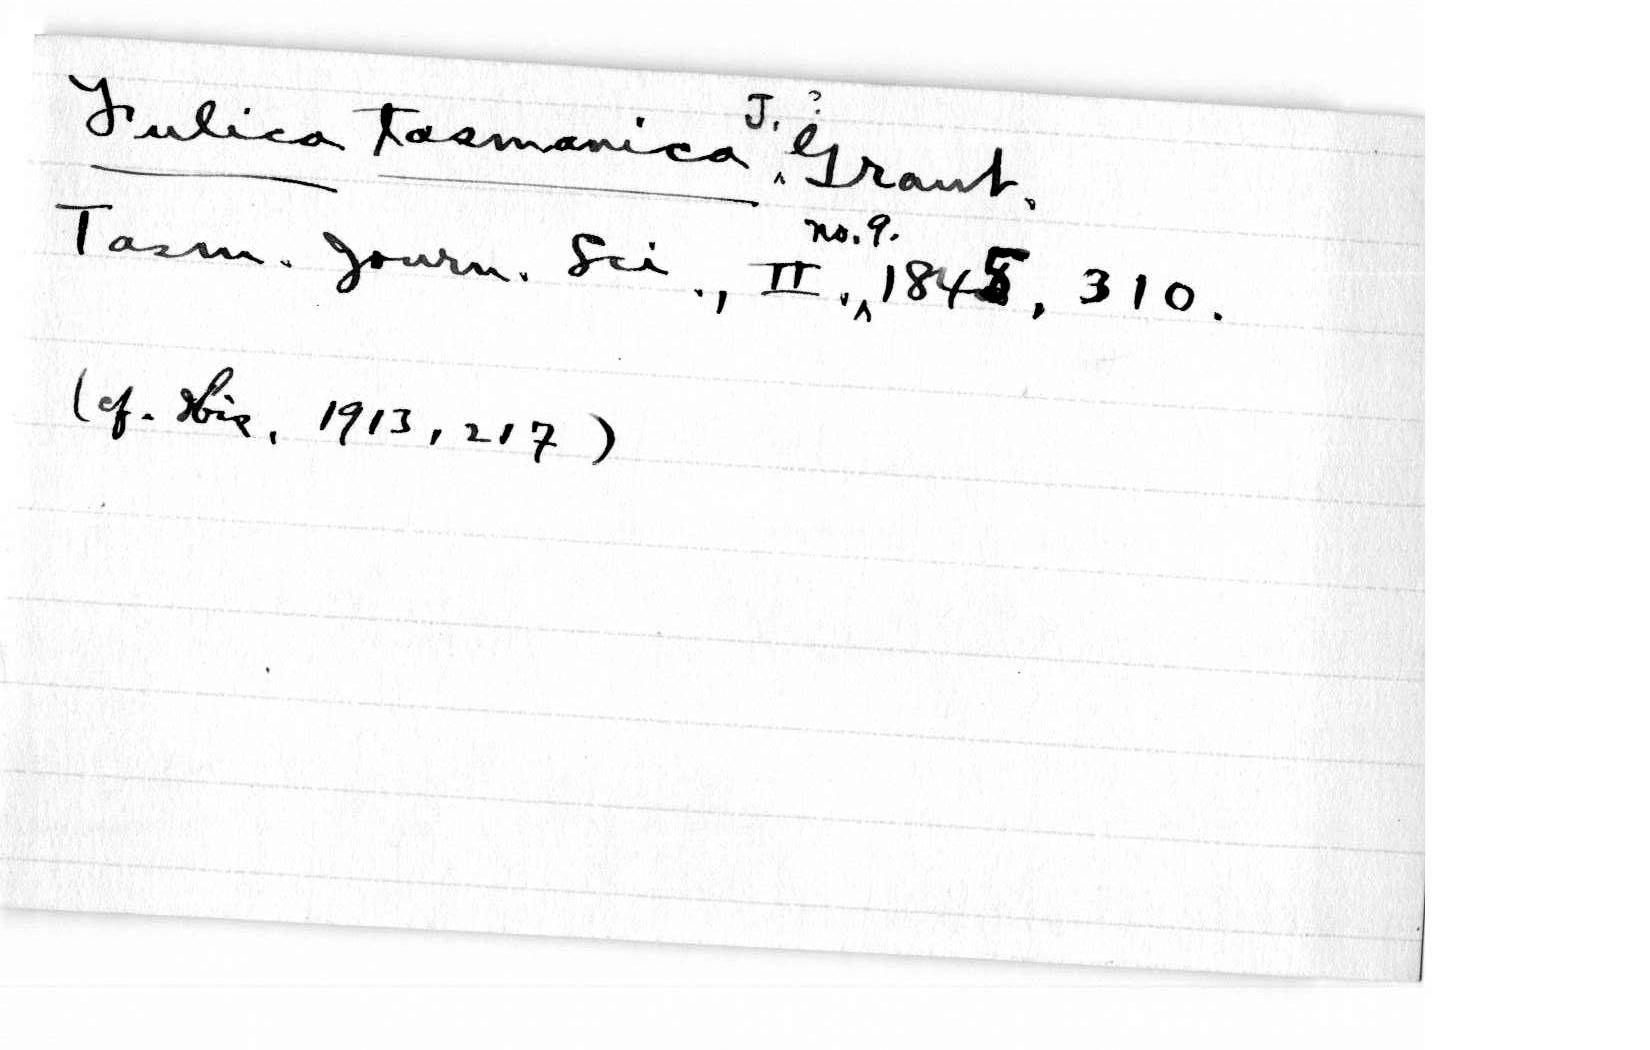 Fulica tasmanica J.? Grant.
Tasm. Journ. Sci., II., no. 9. 1845, 310.
(cf. Ibis, 1913, 217)